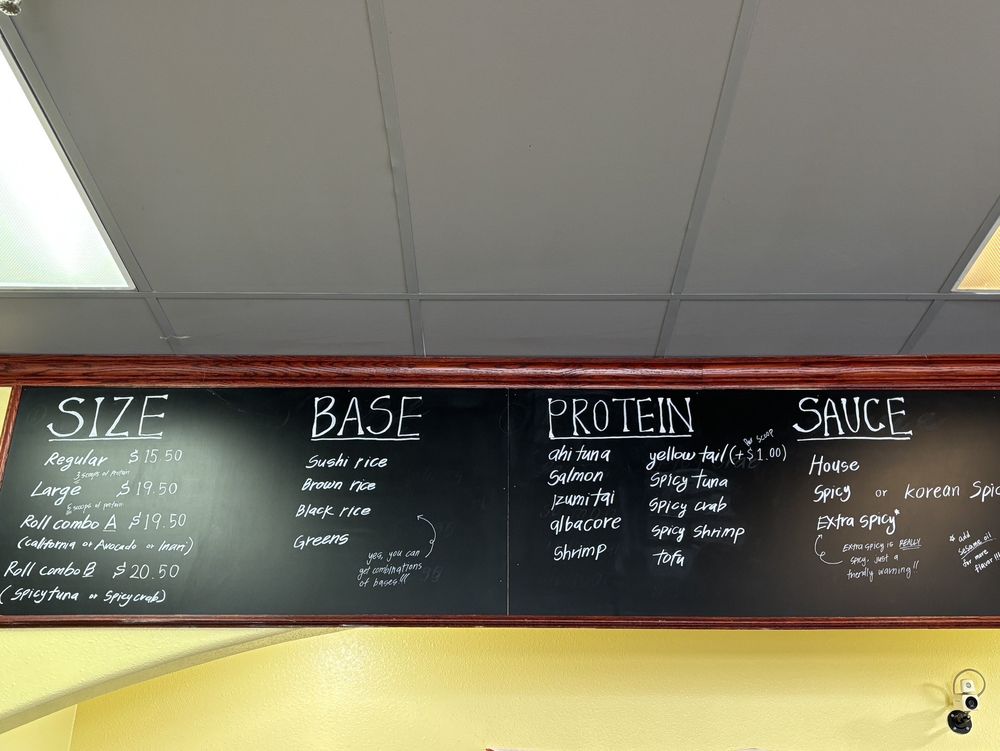 SIZE
Regular $15.50
3 scoops of protein
Large $19.50
scoops of protein
Roll combo A $19.50
(California or Avocado or Inari)
Roll combo B $20.50
(Spicy tuna or Spicy crab)
BASE
Sushi rice
Brown rice
Black rice
Greens
yes, you can
get combinations
of bases!!!
PROTEIN
ahi tuna
Salmon
izumi tai
albacore
Shrimp
per scoop
yellow tail (+$1.00)
Spicy tuna
Spicy crab
Spicy Shrimp
tofu
SAUCE
House
Spicy or Korean Spic
Extra Spicy*
Extra Spicy is REALLY
Spicy, just a
friendly warning!!
* add
Sesame oil
for more
flavor